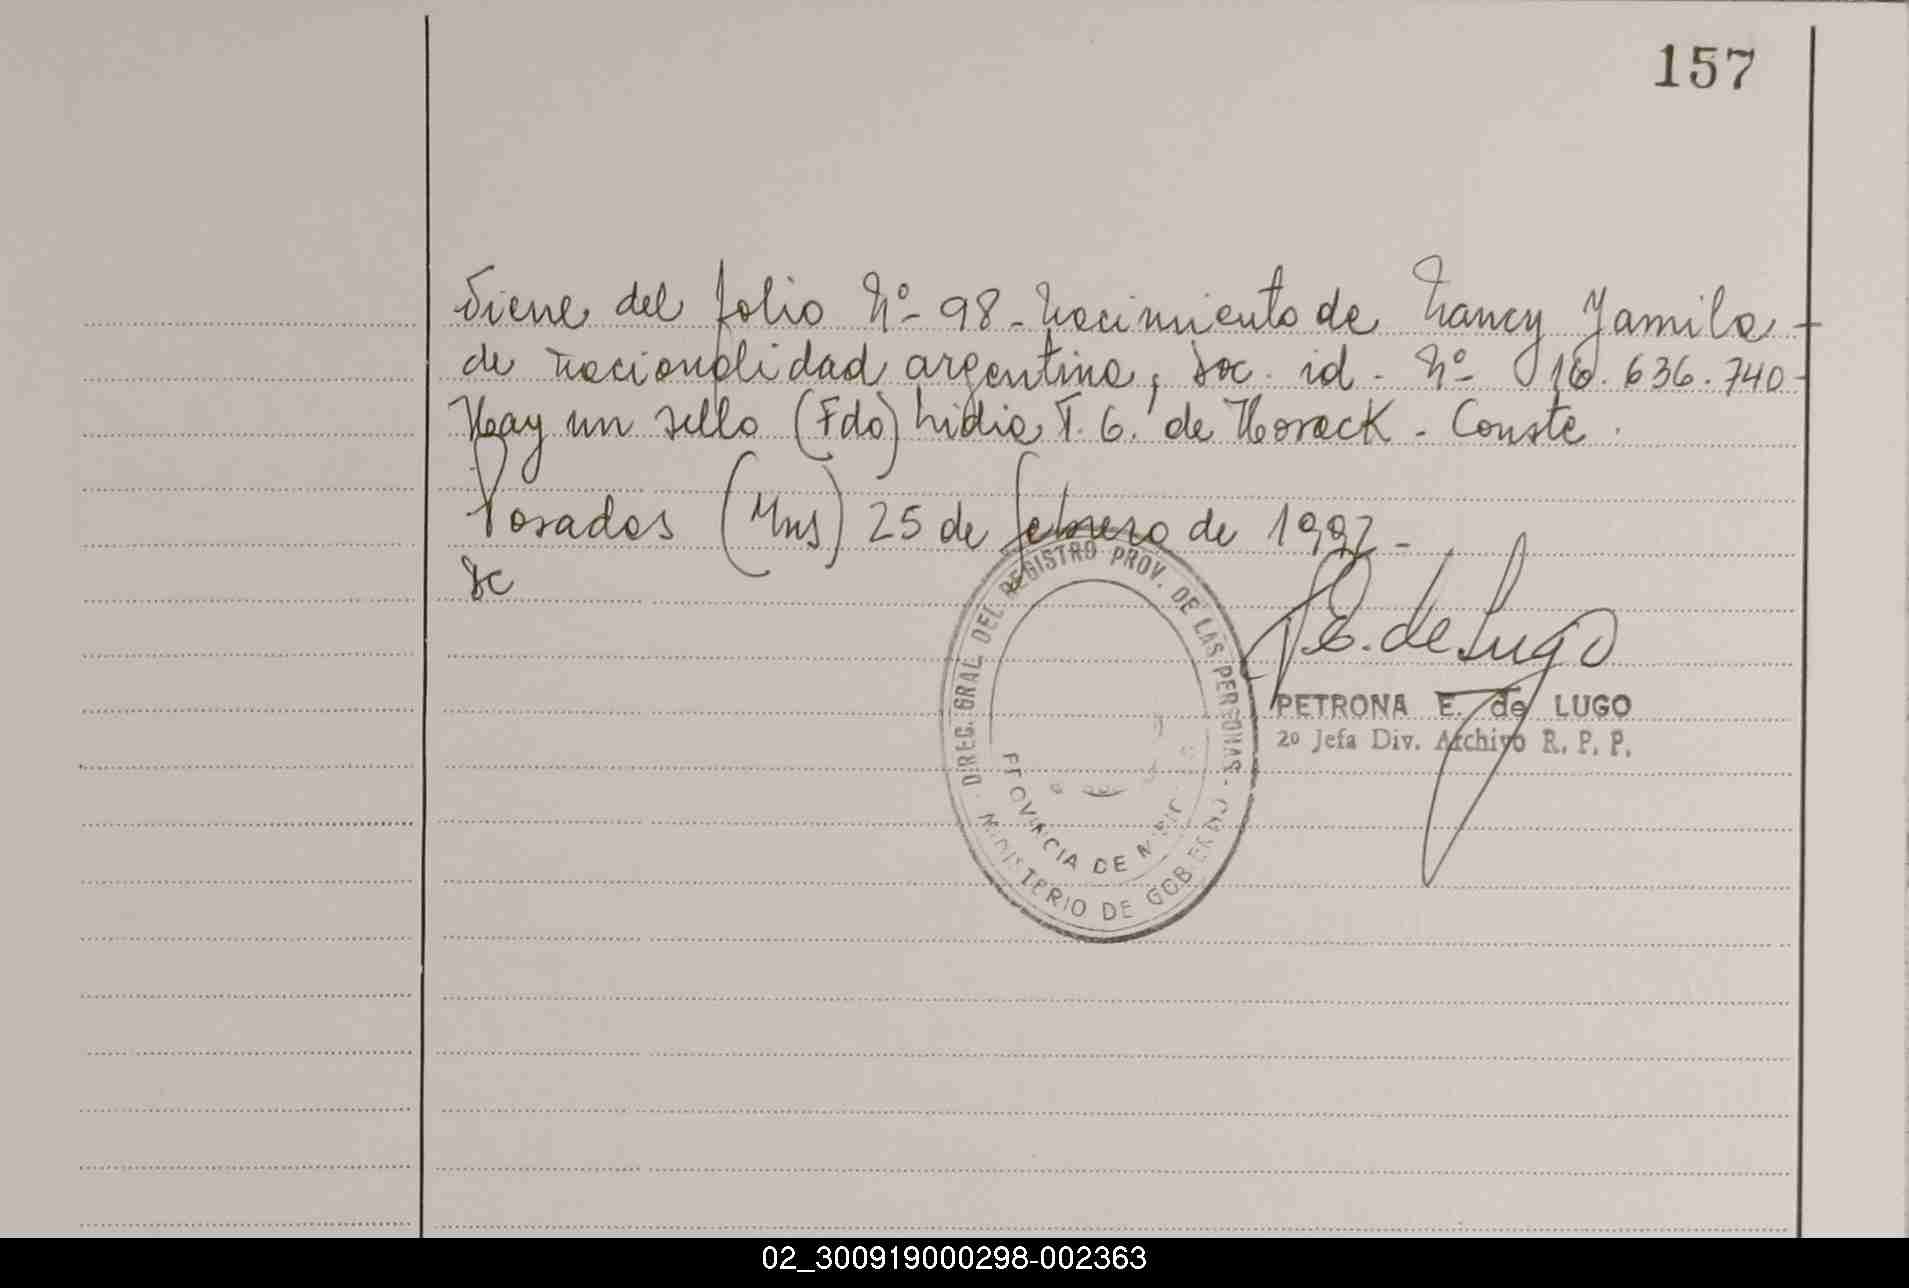 157
Viene del folio Nº- 98 - Nacimiento de Nancy Yamila -
de nacionalidad argentina, doc. id. Nº 16.636.740-
Hay un sello (Fdo) Lidia T. G. de Horack - Conste.
Posadas (Mns) 25 de febrero de 1992 -
sc
DIREC. GRAL. DEL REGISTRO PROV. DE LAS PERSONAS -
PROVINCIA DE
MINISTERIO DE GOBIERNO
E. de Lugo
PETRONA E. de LUGO
2º Jefa Div. Archivo R. P. P.
02_300919000298-002363